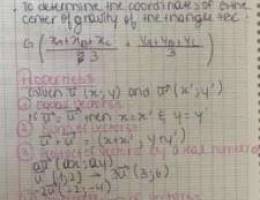 • To determine the coordinates of G the
center of gravity of the triangle ABC.
G ( xA+xB+xC / 3 ; yA+yB+yC / 3 )
Properties
Given u⃗ (x;y) and v⃗ (x';y')
① equal vectors
If u⃗ = v⃗ then x=x' & y=y'
② Sum of vectors
u⃗ + v⃗ = (x+x'; y+y')
vector by a real number
au⃗ (ax; ay)
u⃗ (1;2) → 3u⃗ (3;6)
-2u⃗ (-2;-4)
vectors